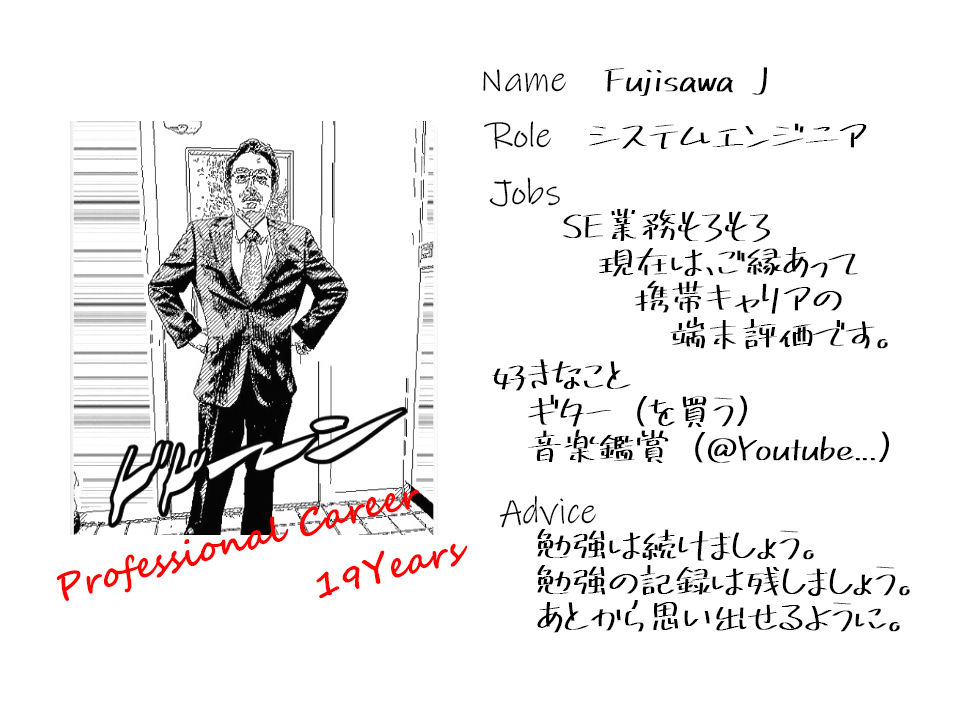 Name Fujisawa J
Role システムエンジニア
Jobs
SE業務もろもろ
現在は、ご縁あって
携帯キャリアの
端末評価です。
好きなこと
ギター（を買う）
音楽鑑賞（@Youtube...）
Advice
勉強は続けましょう。
勉強の記録は残しましょう。
あとから思い出せるように。
ドドーン
Professional Career
19Years